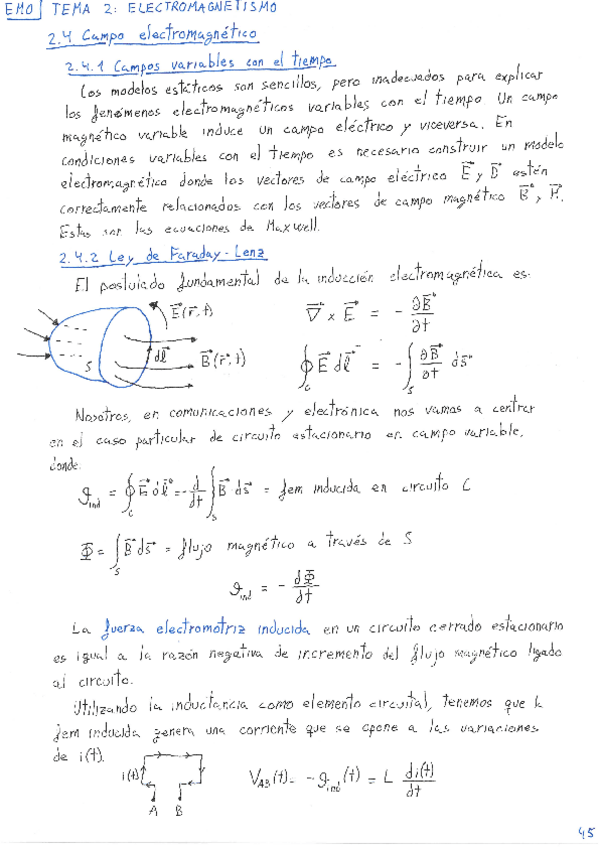 EMO | TEMA 2: ELECTROMAGNETISMO
2.4 Campo electromagnético
2.4.1 Campos variables con el tiempo
Los modelos estáticos son sencillos, pero inadecuados para explicar
los fenómenos electromagnéticos variables con el tiempo Un campo
magnético variable induce un campo eléctrico y viceversa. En
condiciones variables con el tiempo es necesario construir un modelo
electromagnético donde los vectores de campo eléctrico E⃗ y D⃗ estén
correctamente relacionados con los vectores de campo magnético B⃗ y H⃗.
Estas son las ecuaciones de Maxwell.
2.4.2 Ley de Faraday-Lenz
El postulado fundamental de la inducción electromagnética es:
E⃗(r⃗,t)
∇⃗ x E⃗ = - ∂B⃗/∂t
S dl⃗ B⃗(r⃗,t)
∮_C E⃗ dl⃗ = - ∫_S ∂B⃗/∂t ds⃗
Nosotros, en comunicaciones y electrónica nos vamos a centrar
en el caso particular de circuito estacionario en campo variable,
donde:
𝒱_ind = ∮_C E⃗ dl⃗ = - d/dt ∫_S B⃗ ds⃗ = fem inducida en circuito C
Φ = ∫_S B⃗ ds⃗ = flujo magnético a través de S
𝒱_ind = - dΦ/dt
La fuerza electromotriz inducida en un circuito cerrado estacionario
es igual a la razón negativa de incremento del flujo magnético ligado
al circuito.
Utilizando la inductancia como elemento circuital, tenemos que la
fem inducida genera una corriente que se opone a las variaciones
de i(t).
i(t)
V_AB(t) = - 𝒱_ind(t) = L di(t)/dt
A B
45